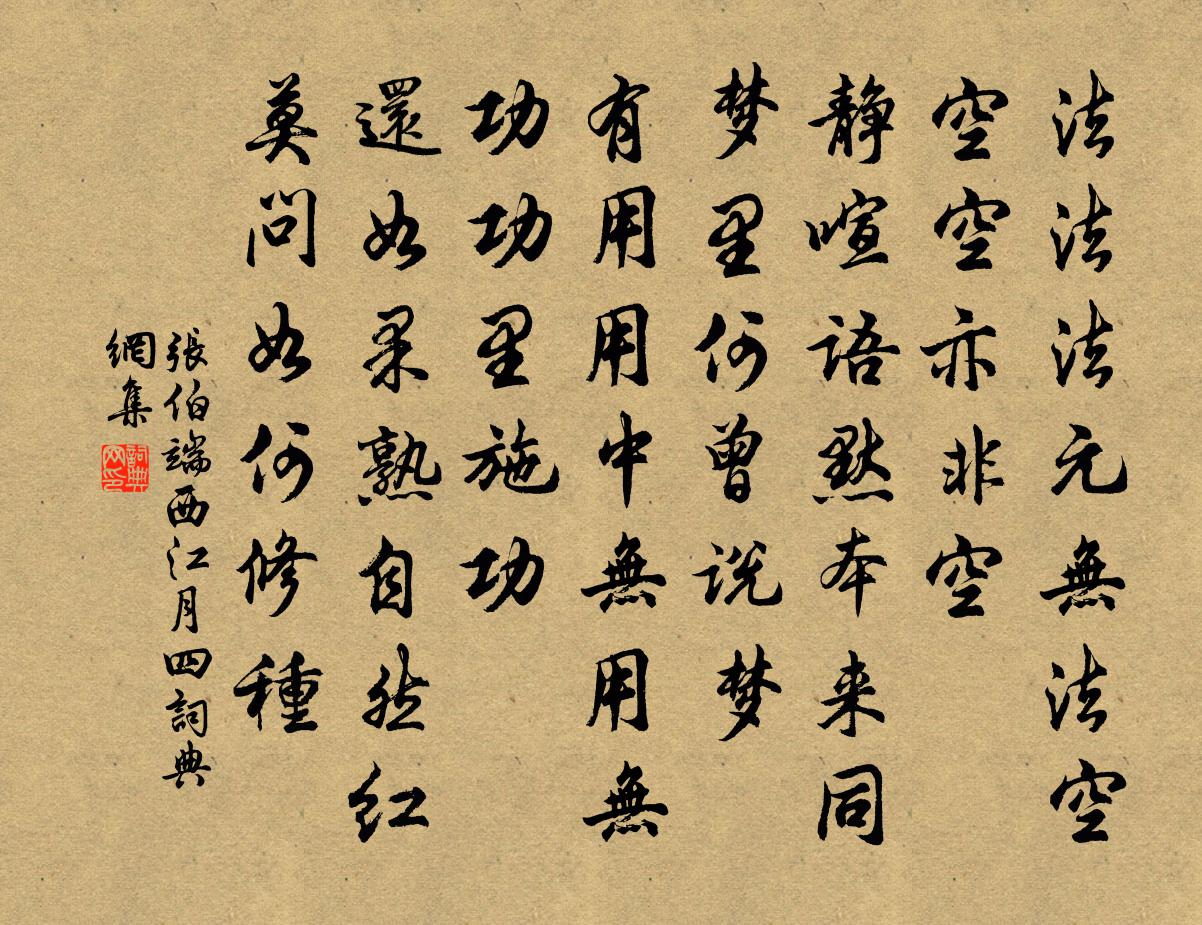 法法法元無法空
空空亦非空
静喧語默本来同
梦里何曾说梦
有用用中無用無
功功里施功
還如果熟自然红
莫问如何修種
張伯端西江月四詞典
網集
詞典
网印